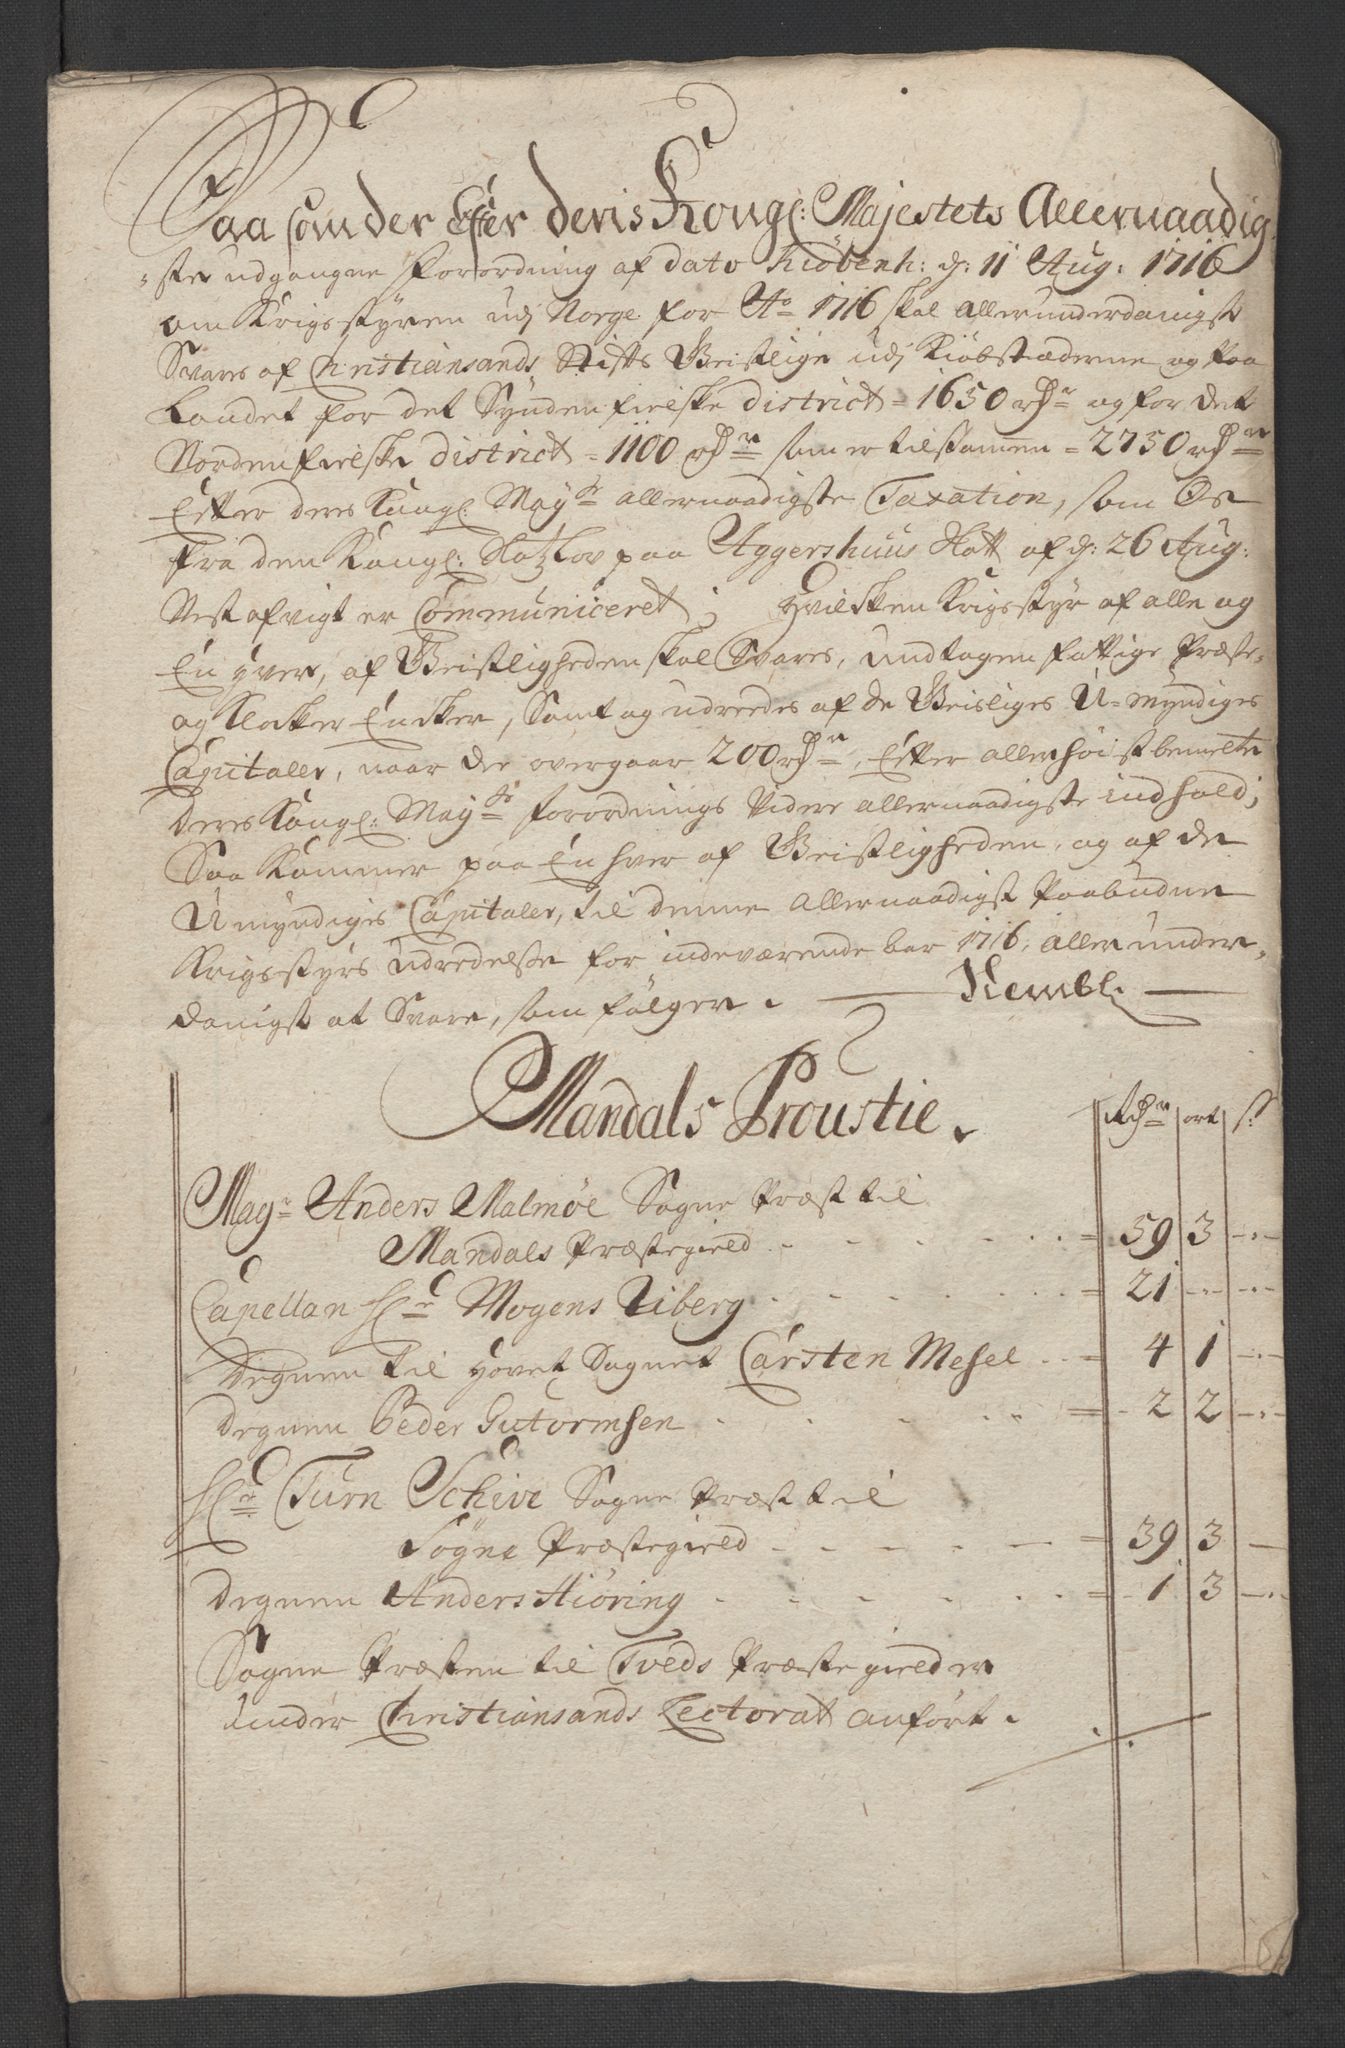 Saasom der Efter deris Kongl: Majestets Allernaadig-
ste udgangne forordning af dato Kiöbenh: d: 11 Aug: 1716
om Krigsstyren udj Norge for Ao 1716 skal allerunderdanigst
Svares af Christiansands Stifts Geistlige udj Kiöbstæderne og paa
Landet for det Syndenfielske district = 1650 rdr og for det
Nordenfielske district = 1100 rdr som er tilsammen = 2750 rdr
Efter deres Kongl: Mayts allernaadigste Taxation, som Os
fra den Kongl: SlotzLov paa Aggershuus Slott af d: 26 Aug:
Nest afvigt er Communiceret; Hvilken Krigsstyr af alle og
En hver, af Geistligheden skal Svares, undtagen fattige Præste-
og Klocker Encker, Samt og udredes af de Geisliges U-myndiges
Capitaler, naar de overgaar 200 rdr, Efter allerhöist bemelte
deres Kongl: Mayts forordnings videre allernaadigste indhold;
Saa Kommer paa En hver af Geistligheden, og af de
Umyndiges Capitaler, til denne allernaadigst Paabudne
Krigsstyrs udredelse for indeværende aar 1716, allerunder-
danigst at Svare, som fölger.
Nembl.
Mandals Proustie.
Rdr ort s:
Magr Anders Malmöe Sogne Præst til
Mandals Præstegield = 59 3 -
Capellan Hr Mogens Wiberg = 21 - -
Degnen til Hovet Sognet Carsten Mesel = 4 1 -
Degnen Peder Gutormsen = 2 2 -
Hr Turn Schive Sogne Præst til
Sögne Præstegield = 39 3 -
Degnen Anders Hiöring = 1 3 -
Sogne Præsten til Tveds Præstegield er
under Christiansands Lectorat anfört.